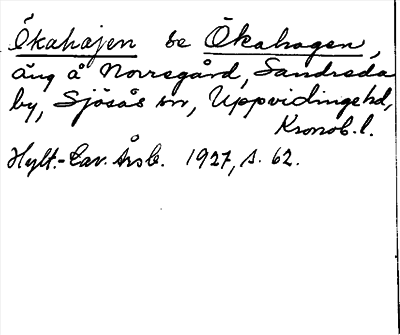 Ökahajen se Ökahagen,
äng å Norregård, Sandreda
by, Sjösås sn, Uppvidinge hd,
Kronob. l.
Hylt.-Cav. Årsb. 1927, s. 62.